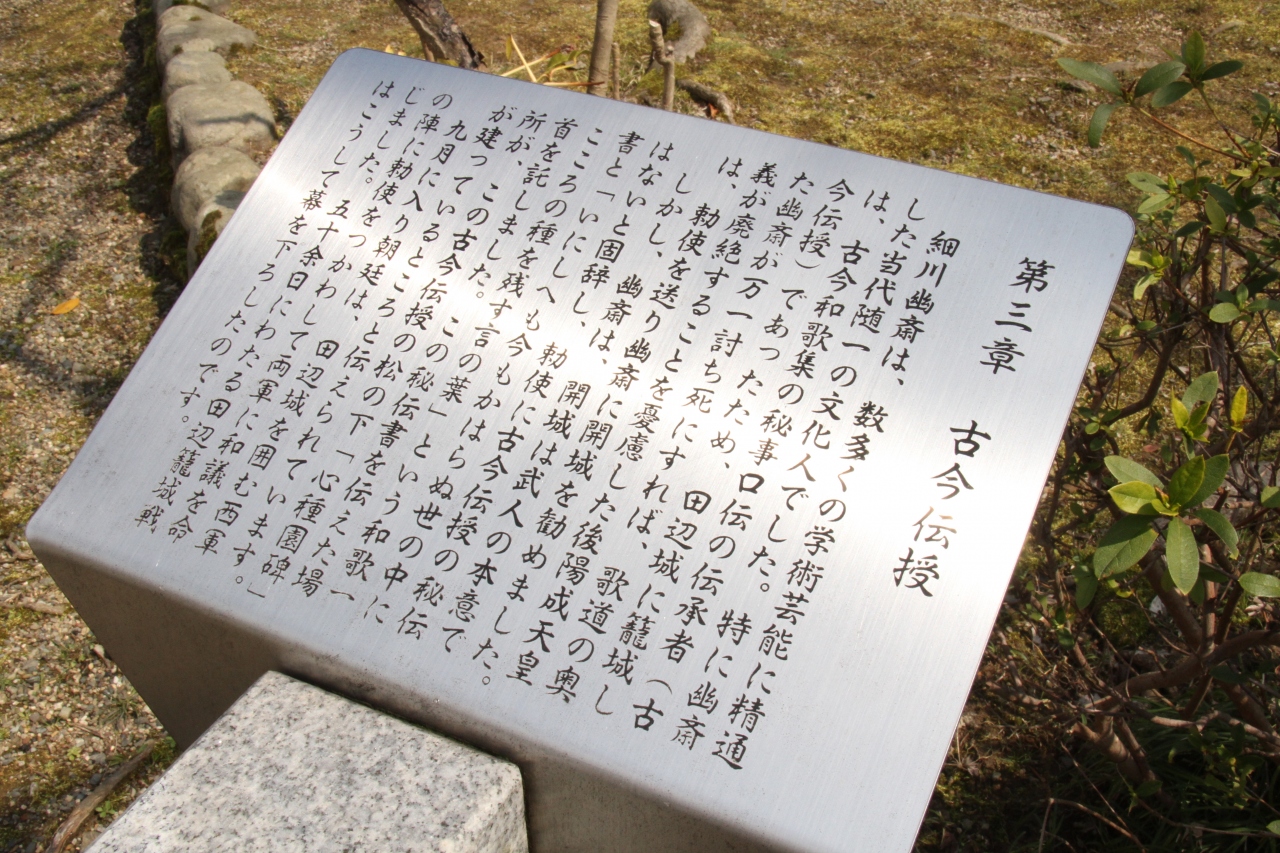 第三章　古今伝授
細川幽斎は、数多くの学術芸能に精通
した当代随一の文化人でした。特に幽斎
は、古今和歌集の秘事口伝の伝承者（古
今伝授）であったため、田辺城に籠城し
た幽斎が万一討ち死にすれば、歌道の奥
義が廃絶することを憂慮した後陽成天皇
は、勅使を送り幽斎に開城を勧めました。
しかし、幽斎は、開城は武人の本意で
はないと固辞し、勅使に古今伝授の秘伝
書と「いにしへも今もかはらぬ世の中に
こころの種を残す言の葉」という和歌一
首を託しました。この秘伝書を伝えた場
所が、この古今伝授の松の下「心種園碑」
が建っているところと伝えられています。
九月に入ると朝廷は、田辺城を囲む西軍
の陣に勅使をつかわして両軍に和議を命
じました。五十余日にわたる田辺籠城戦
はこうして幕を下ろしたのです。